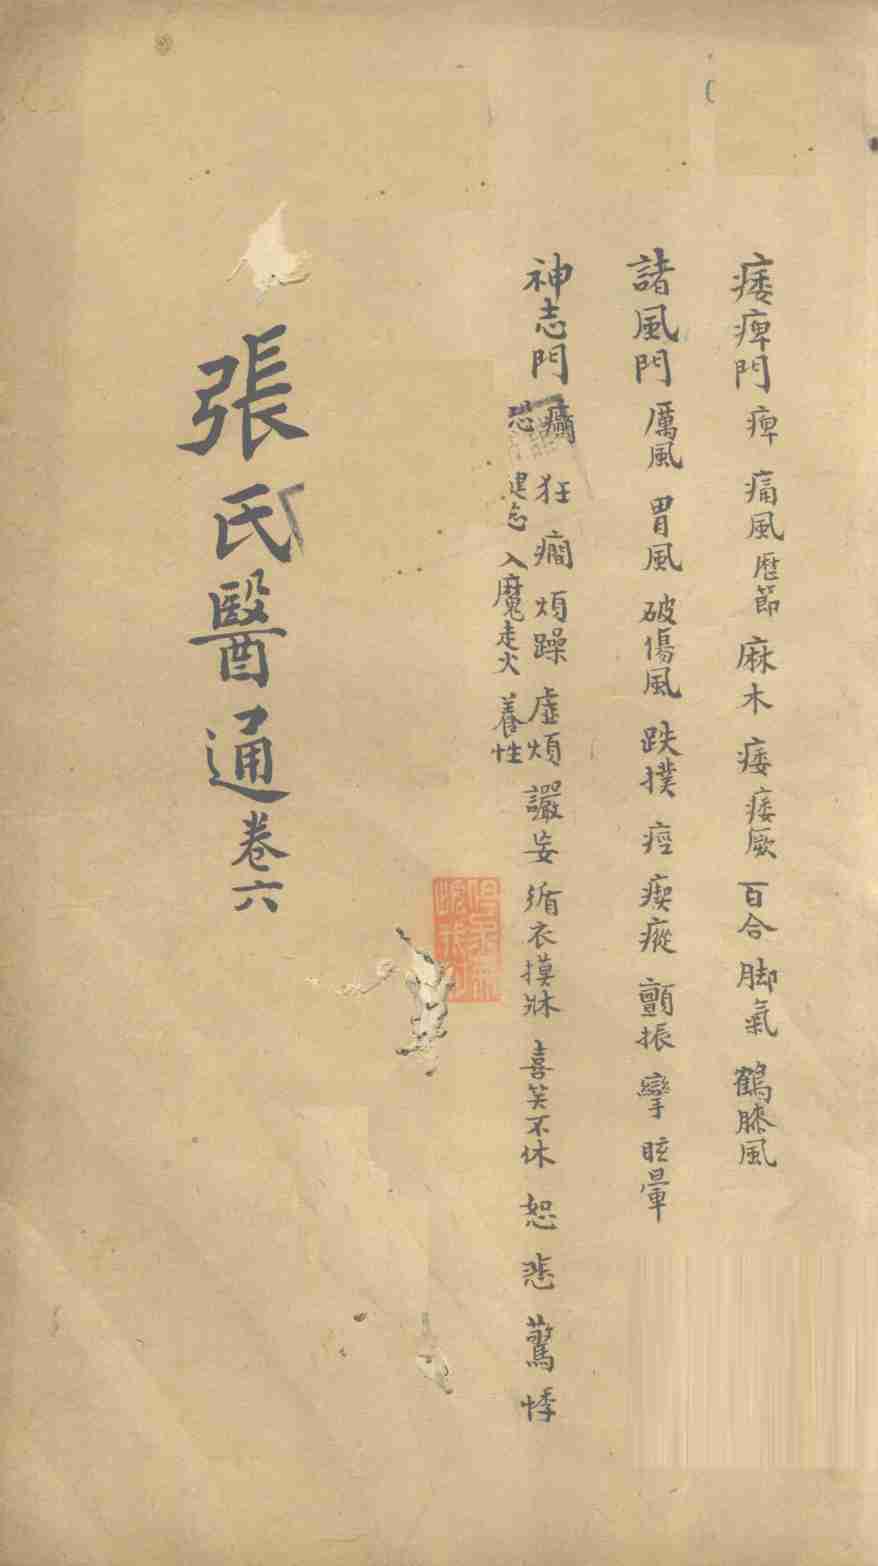 痿痺門 痺 痛風 歷節 麻木 痿 痿厥 百合 脚氣 鶴膝風
諸風門 厲風 胃風 破傷風 跌撲 痙 瘈瘲 顫振 攣 眩暈
神志門 癲 狂 癇 煩躁 虛煩 讝妄 循衣摸牀 喜笑不休 怒 悲 驚 悸
恐 建忘 入魔走火 養性
張氏醫通卷六